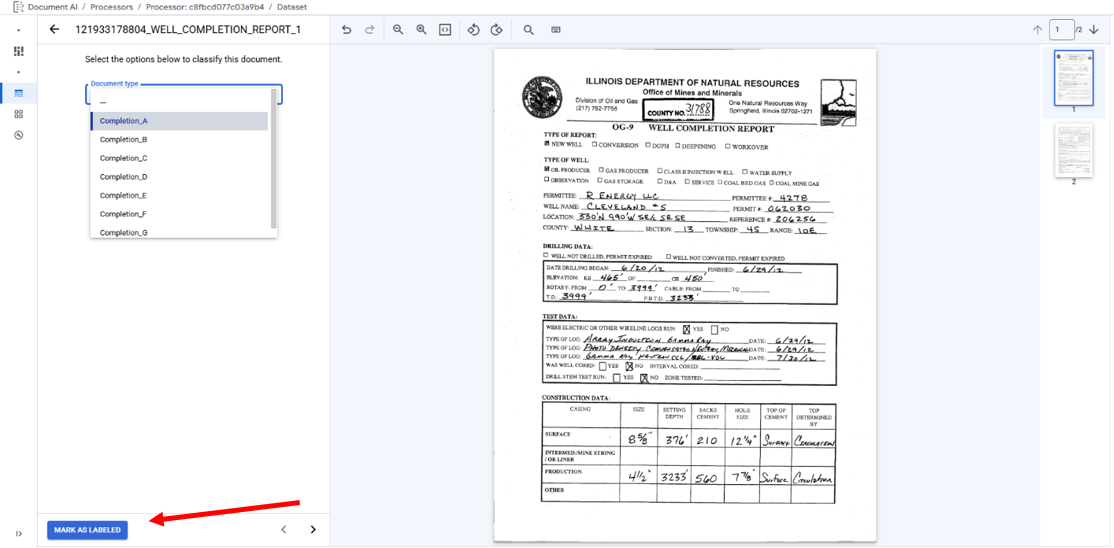 Document AI / Processors / Processor: c8fbcd077c03a9b4 / Dataset
121933178804_WELL_COMPLETION_REPORT_1
1 /2
Select the options below to classify this document.
Document type
---
Completion_A
Completion_B
Completion_C
Completion_D
Completion_E
Completion_F
Completion_G
MARK AS LABELED
ILLINOIS DEPARTMENT OF NATURAL RESOURCES
Office of Mines and Minerals
Division of Oil and Gas
(217) 782-7756
COUNTY NO. 31788
One Natural Resources Way
Springfield, Illinois 62702-1271
OG-9 WELL COMPLETION REPORT
TYPE OF REPORT:
NEW WELL CONVERSION DOPH DEEPENING WORKOVER
TYPE OF WELL:
OIL PRODUCER GAS PRODUCER CLASS II INJECTION WELL WATER SUPPLY
OBSERVATION GAS STORAGE D&A SERVICE COAL BED GAS COAL MINE GAS
PERMITTEE: R ENERGY LLC PERMITTEE #: 4278
WELL NAME: CLEVELAND #5 PERMIT #: 062030
LOCATION: 330'N 990'W SE/c SE SE REFERENCE #: 206256
COUNTY: WHITE SECTION: 13 TOWNSHIP: 4S RANGE: 10E
DRILLING DATA:
WELL NOT DRILLED, PERMIT EXPIRED WELL NOT CONVERTED, PERMIT EXPIRED
DATE DRILLING BEGAN: 6/20/12 FINISHED: 6/29/12
ELEVATION: KB 465' OF OR 450'
ROTARY: FROM 0' TO 3999' CABLE: FROM TO
T.D. 3999' P.B.T.D. 3233'
TEST DATA:
WERE ELECTRIC OR OTHER WIRELINE LOGS RUN: YES NO
TYPE OF LOG: ARRAY INDUCTION GAMMA RAY DATE: 6/29/12
TYPE OF LOG: PHOTO DENSITY COMPENSATED NEUTRON, DATE: 6/29/12
TYPE OF LOG: GAMMA RAY NEUTRON CCL / DATE: 7/30/12
WAS WELL CORED: YES NO INTERVAL CORED:
DRILL STEM TEST RUN: YES NO ZONE TESTED:
CONSTRUCTION DATA:
CASING SIZE SETTING DEPTH SACKS CEMENT HOLE SIZE TOP OF CEMENT TOP DETERMINED BY
SURFACE 8 5/8" 376' 210 12 1/4" Surface Circulation
INTERMED./MINE STRING / OR LINER
PRODUCTION 4 1/2" 3233' 560 7 7/8" Surface Circulation
OTHER
1
2